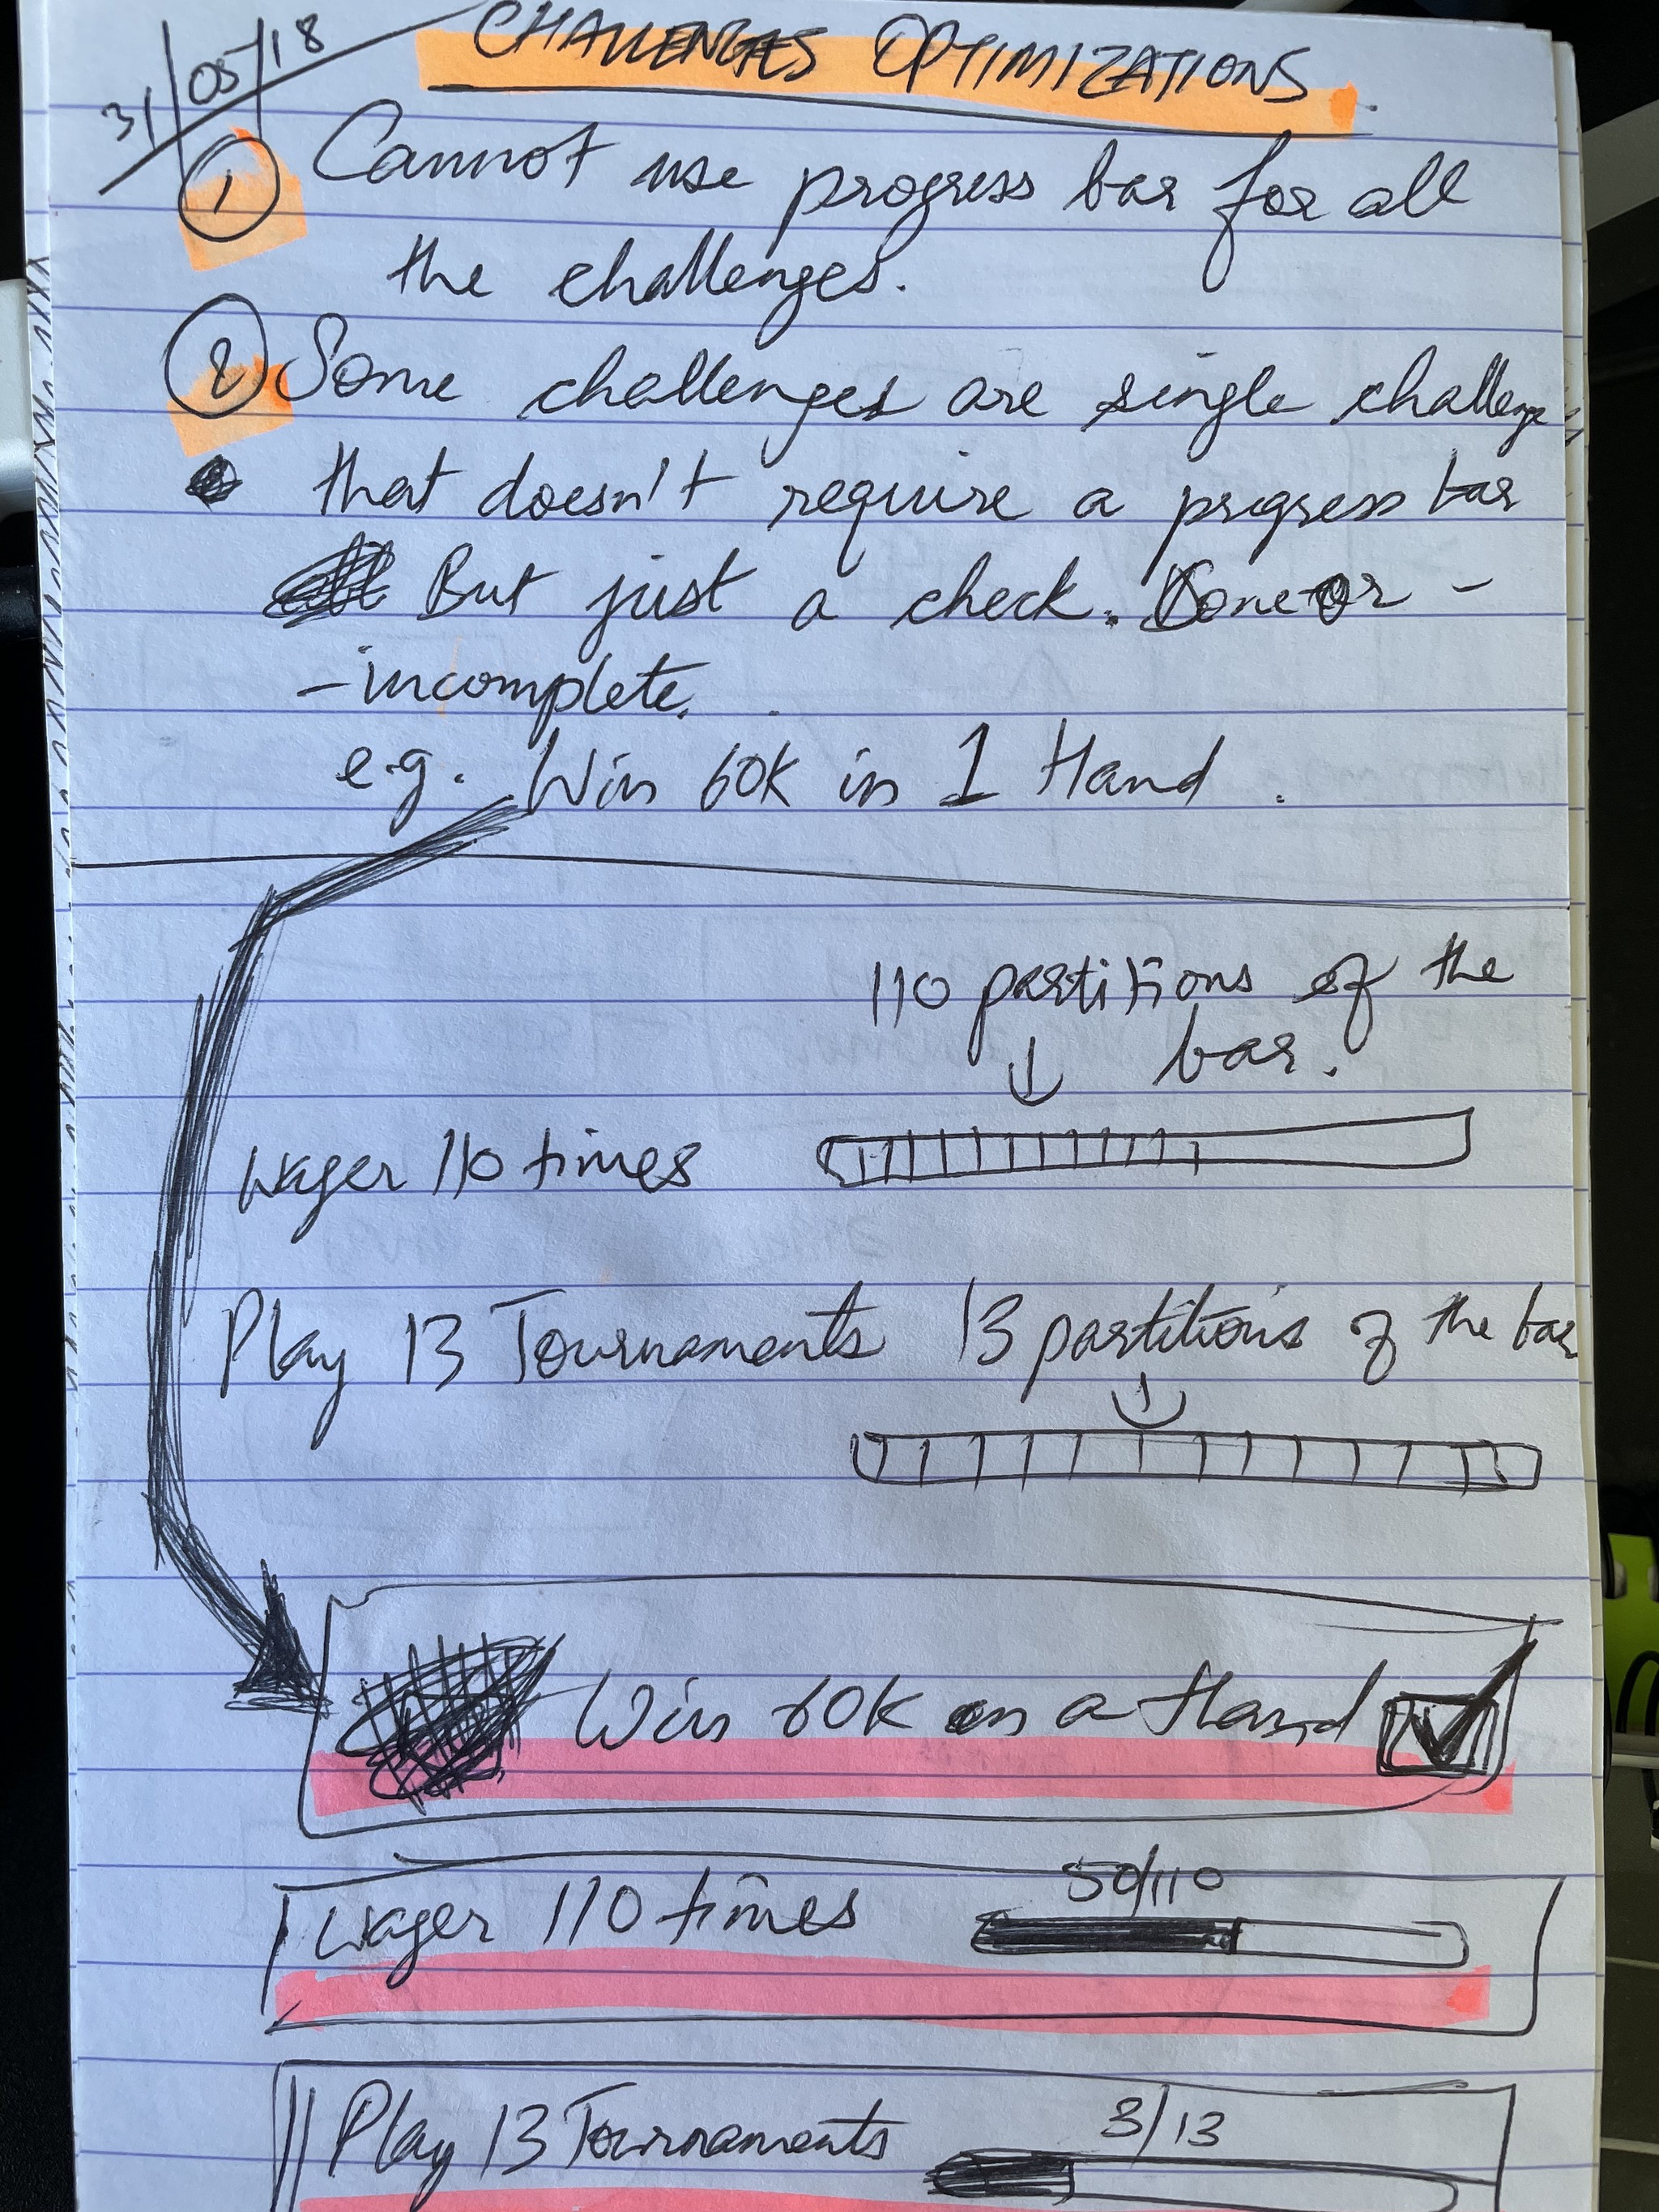 31/05/18
CHALLENGES OPTIMIZATIONS.
1 Cannot use progress bar for all
the challenges.
2 Some challenges are single challenge
that doesn't require a progress bar
But just a check. Done or -
- incomplete.
e.g. Win 60k in 1 Hand.
110 partitions of the
bar.
Wager 110 times
Play 13 Tournaments 13 partitions of the bar
Win 60k in a Hand
50/110
Wager 110 times
3/13
Play 13 Tournaments